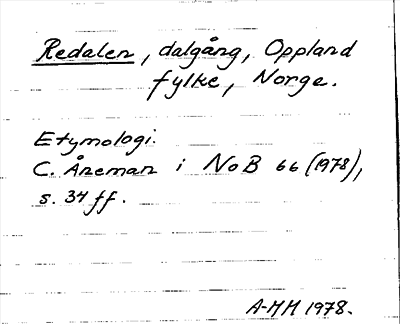 Redalen, dalgång, Oppland
fylke, Norge.
Etymologi.
C. Åneman i NoB 66 (1978),
s. 34 ff.
A-MM 1978.